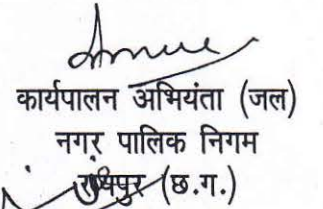 कार्यपालन अभियंता (जल)
नगर पालिक निगम
रायपुर (छ.ग.)